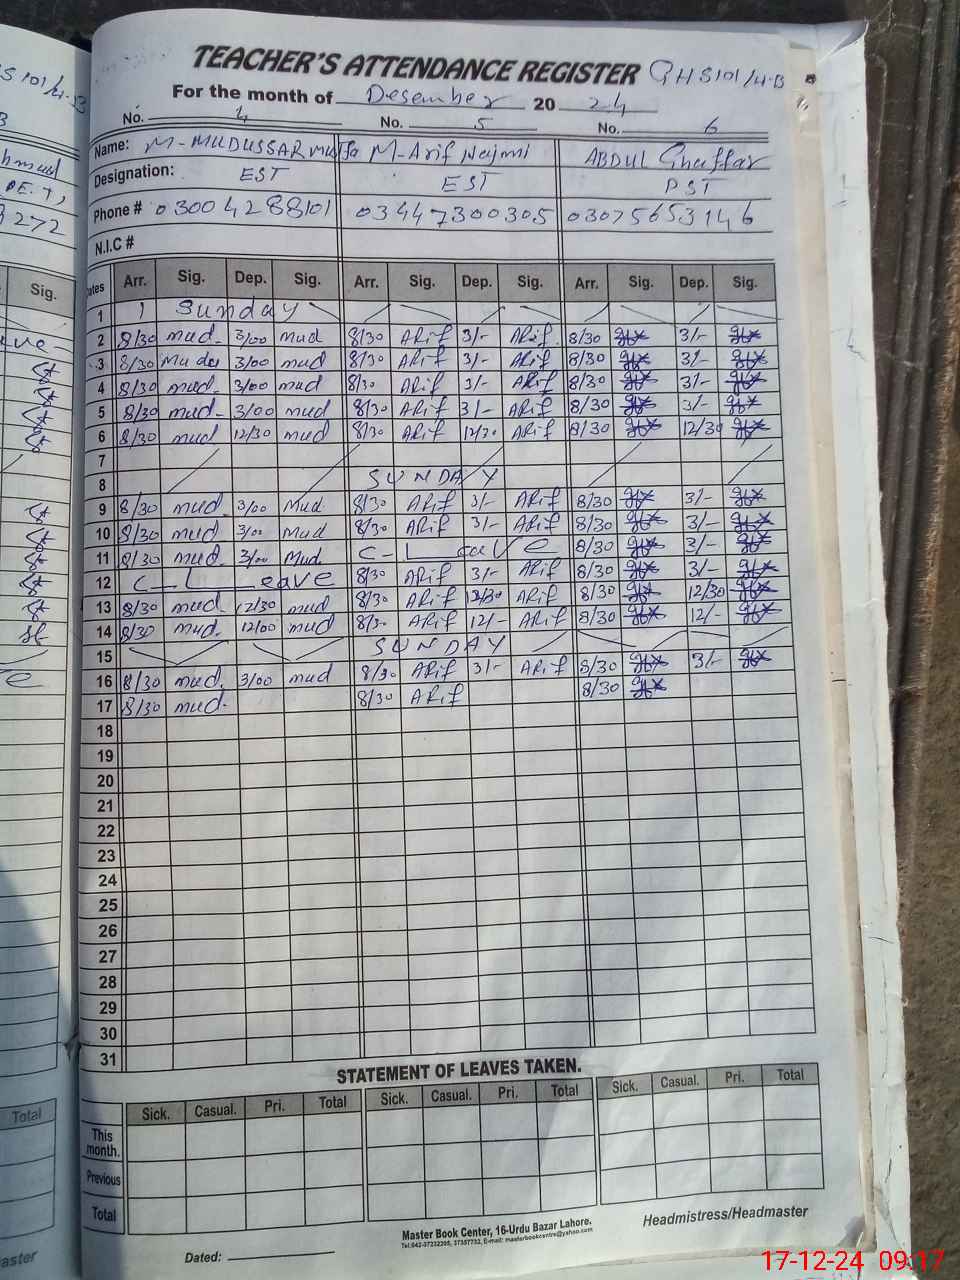 TEACHER'S ATTENDANCE REGISTER GHS 101/4-B
For the month of Desember 20 24
No. 4 No. 5 No. 6
Name: M-MUDUSSAR M-Arif Najmi ABDUL Ghaffar
Designation: EST EST PST
Phone # 03004288101 03447300305 03075653146
N.I.C #
Dates Arr. Sig. Dep. Sig. Arr. Sig. Dep. Sig. Arr. Sig. Dep. Sig.
1 Sunday
2 8/30 mud. 3/00 mud 8/30 ARif 3/- ARif 8/30 3/-
3 8/30 Mudo 3/00 mud 8/30 ARif 3/- ARif 8/30 3/-
4 8/30 mud. 3/00 mud 8/30 ARif 3/- ARif 8/30 3/-
5 8/30 mud- 3/00 mud 8/30 ARif 3/- ARif 8/30 3/-
6 8/30 mud 12/30 mud 8/30 ARif 12/30 ARif 8/30 12/30
7
8 SUNDAY
9 8/30 mud. 3/00 Mud 8/30 ARif 3/- ARif 8/30 3/-
10 8/30 mud. 3/00 Mud 8/30 ARif 3/- ARif 8/30 3/-
11 8/30 mud. 3/00 Mud. C-Leave 8/30 3/-
12 C-Leave 8/30 ARif 3/- ARif 8/30 3/-
13 8/30 mud 12/30 mud 8/30 ARif 12/30 ARif 8/30 12/30
14 8/30 mud. 12/00 mud 8/30 ARif 12/- ARif 8/30 12/-
15 SUNDAY
16 8/30 mud. 3/00 mud 8/30 ARif 3/- ARif 8/30 3/-
17 8/30 mud. 8/30 ARif 8/30
18
19
20
21
22
23
24
25
26
27
28
29
30
31
STATEMENT OF LEAVES TAKEN.
Sick. Casual. Pri. Total Sick. Casual. Pri. Total Sick. Casual. Pri. Total
This month.
Previous
Total
Master Book Center, 16-Urdu Bazar Lahore.
Headmistress/Headmaster
Dated:
17-12-24 09:17